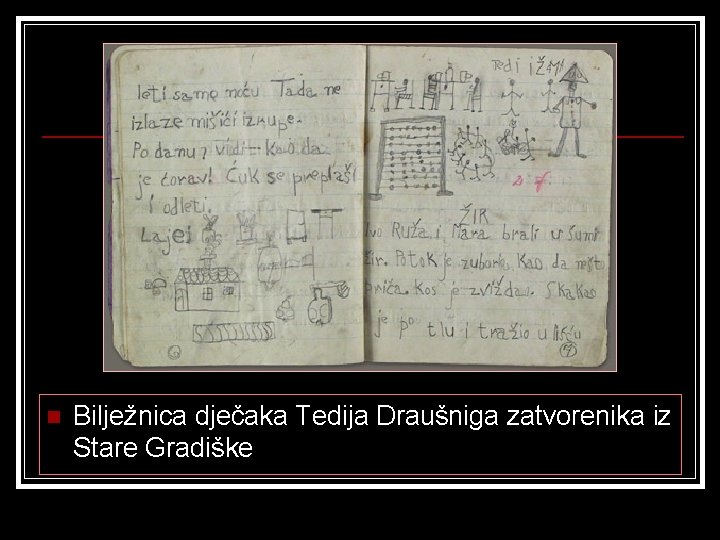 leti samo noću Tada ne
izlaze mišići iz rupe.
Po danu vidi kao da
je ćorav! Ćuk se preplaši
i odleti.
Lajei
6
Tedi i
ŽIR
Ivo Ruža i Mara brali u šumi
žir. Potok je zuborio kao da nešto
priča. Kos je zvižda. Skakao
je po tlu i tražio u lišću
Bilježnica dječaka Tedija Draušniga zatvorenika iz
Stare Gradiške